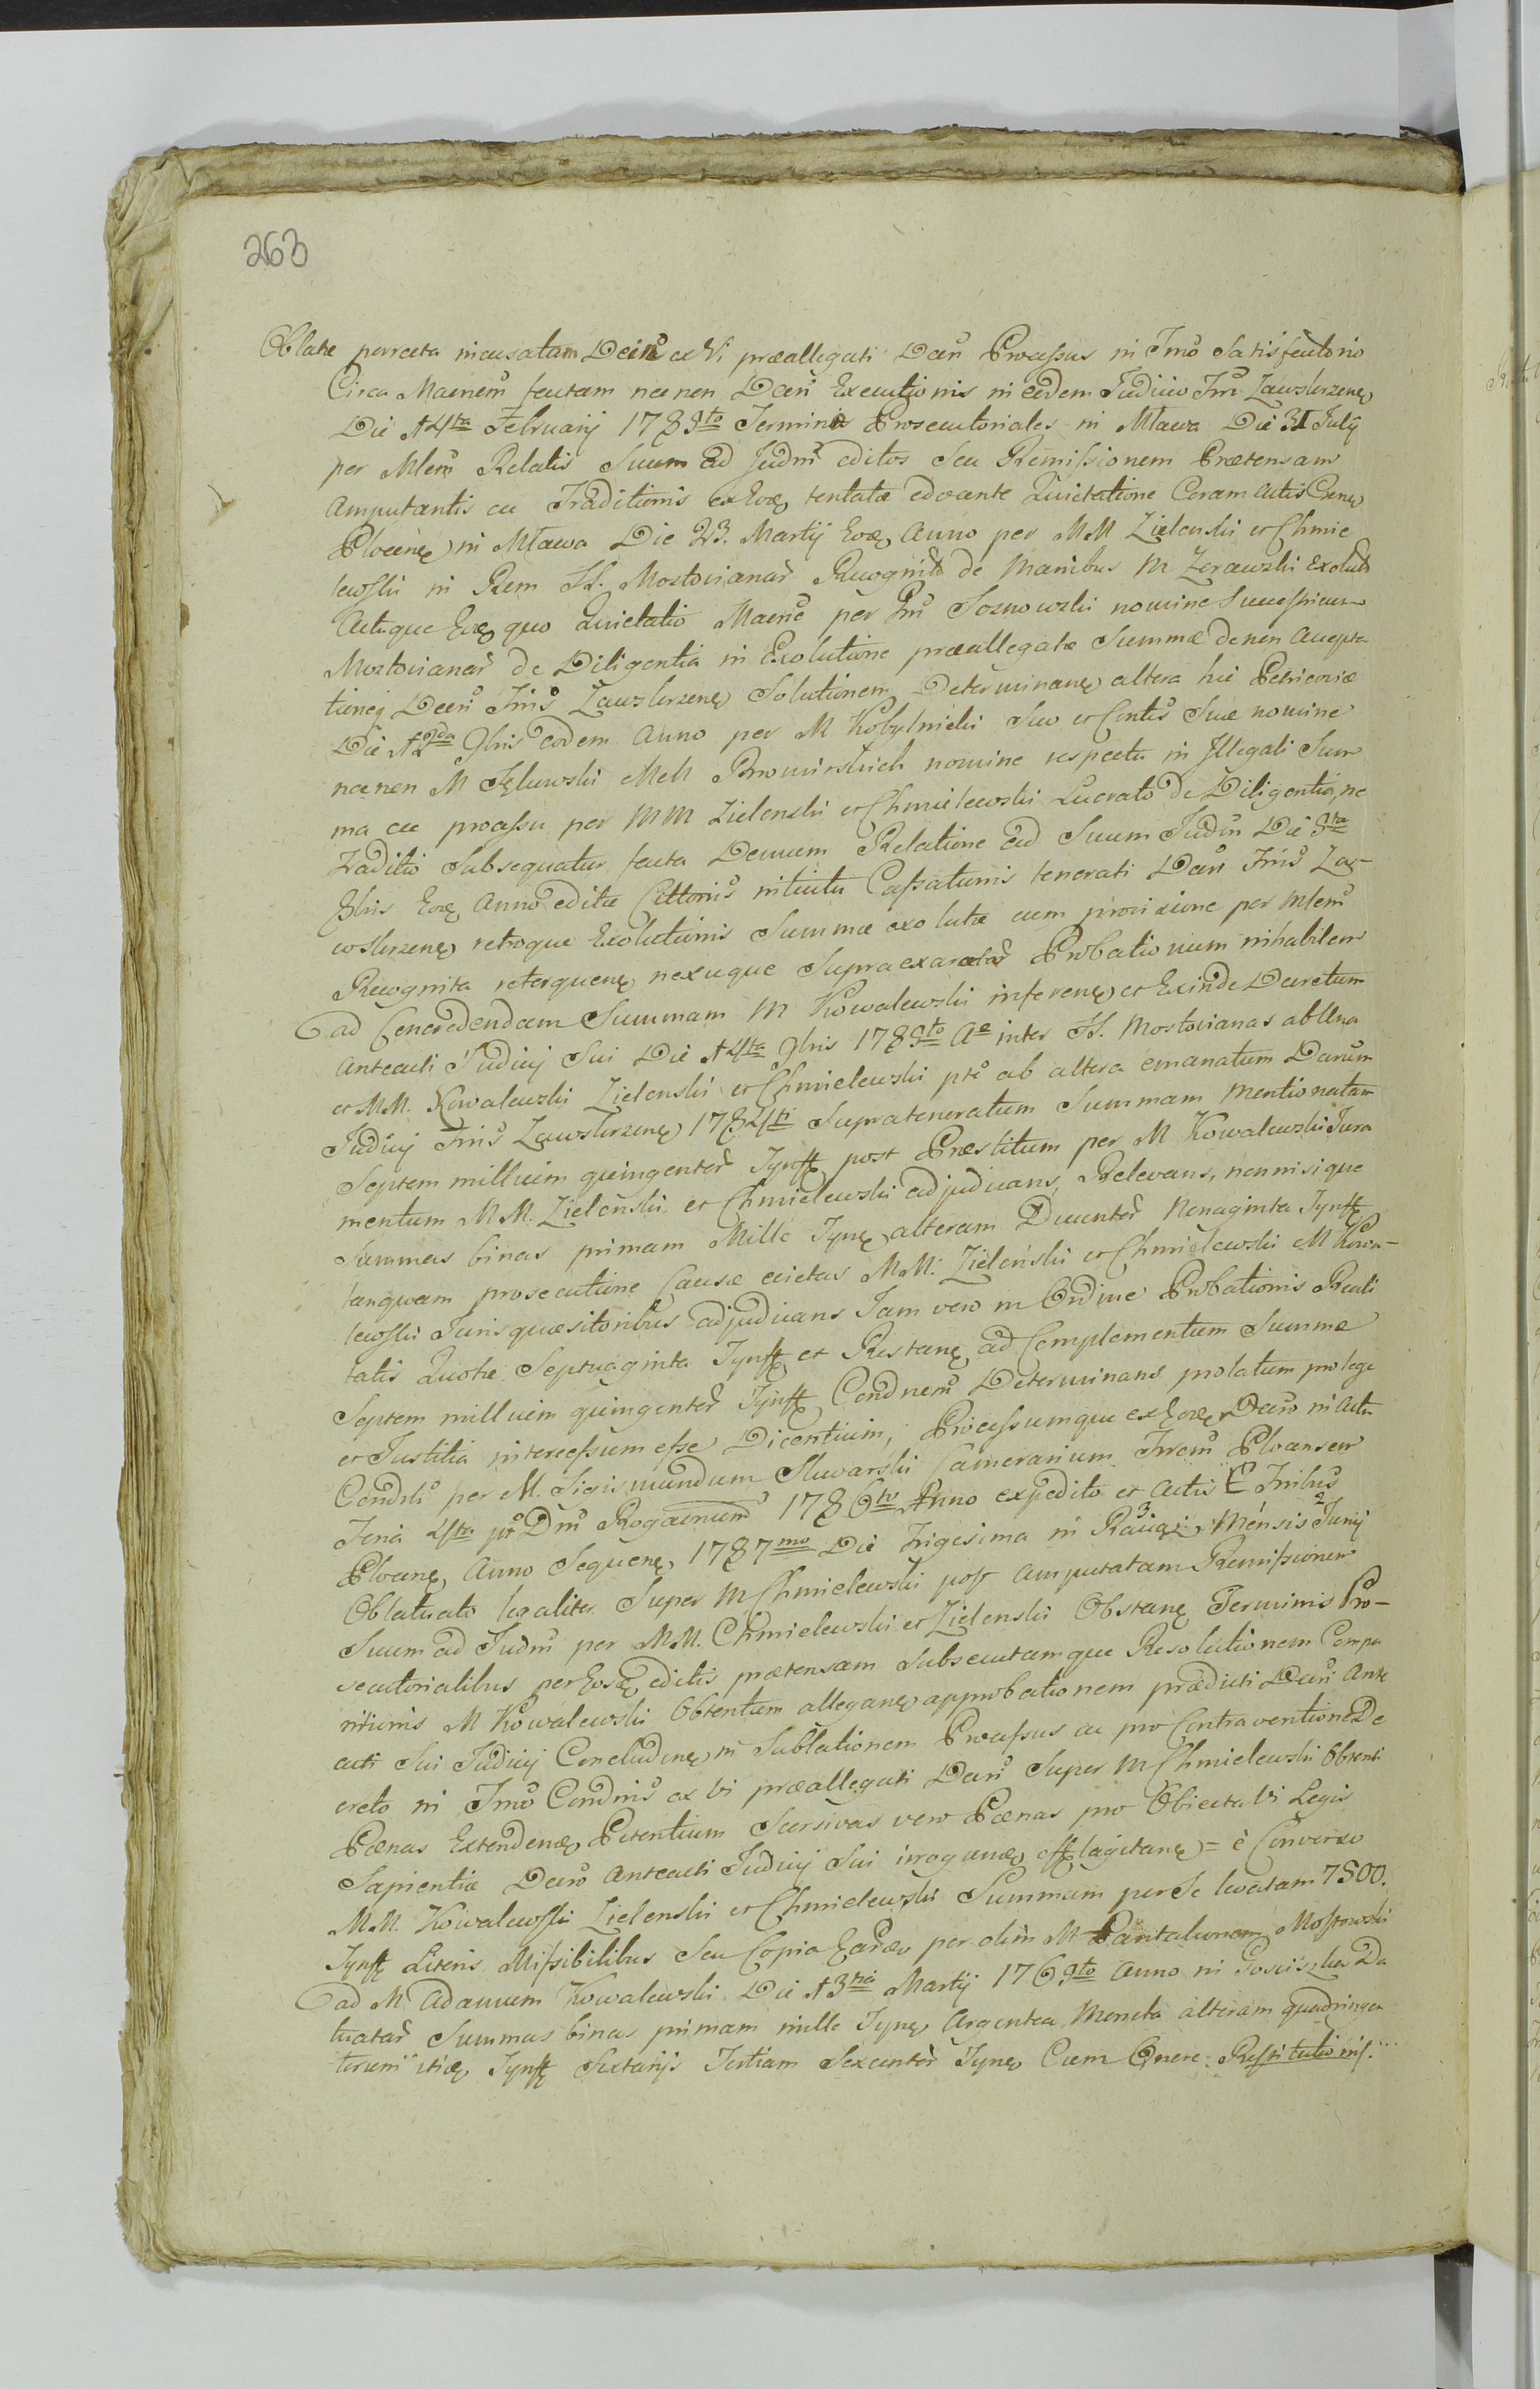 263
Oblatæ porrecta incusatam Decis ex Vi præallegati Dcti Processus in Trno Satisfactorio
Circa Manem factam necnon Dcti Executionis in eodem Judicio Trri Zawskrzenę
Die 14ta Februarij 1783tio Termini Prosecutoriales in Mława Die 31 July
per Mlem Relatis Suum ad Judm editos Seu Remissionem Prætensam
Amputantis ac Traditionis ex Eoę tentatæ edocente Quietatione Coram Actis Csenę
Plocenę in Mława Die 23. Martij Eoę Anno per MM Zielenski et Chmie
lewski in Rem JJ. Mostovianar Recognito de Manibus M Zerawski Exolut
Actuque Eoę quo Quietatio Manē per Jm Sosnowski nomine Successicum
Mostovianar de Diligentia in Exolutione præallegatæ Summæ de non Accepta
tioneq Decri Trris Zawskrzenę Solutionem Determinanę altera hic Petricoviæ
Die 12da 9bris eodem Anno per M Kobylnicki Suo et Contis Suæ nomine
necnon M Sękowski MMM Bromirskich nomine respectu in Illegali Sum
ma ac processu per MM Zielenski et Chmielewski Lucrato de Diligentia, ne
traditio Subsequatur facta Demum Relatione ad Suum Judm Die 3tia
8bris Eoę Anno editæ Cittonis intuitu Cassationis tenorati Dcti Trris Za-
wskrzenę retroque Exolutionis Summæ exolutæ cum provisione per Mlem
Recognita reterquenę nexuque Supraexaratar Probationum inhabilem
ad Concredendam Summam M Kowalewski inferenę et Exinde Decretum
Anteacti Judicij Sui Die 14ta 9bris 1785to Ao inter JJ. Mostovianas ab Una
et MM. Kowalewski Zielenski et Chmielewski pte ab altera emanatum Darum
Judicij Trris Zawskrzenę 1784ti Supratenoratum Summam Mentionatam
Septem millium quingentor Tynff post Præstitum per M Kowalewski Jura
mentum MM. Zielenski et Chmielewski adjudicans, Relevans, nonnisique
Summas binas primam Mille Tynę alteram Ducentor Nonaginta Tynff
tanquam prosecutione Causæ evictas MM. Zielenski et Chmielewski M Kowa-
lewski Jurisquæsitoribus adjudicans Jam vero in Ordine Probationis Reali
tatis Quotæ Septuaginta Tynff et Restanę ad Complementum Summæ
Septem millium quingentor Tynff Condnem Determinans prolatum pro lege
et Justitia intercessum esse Dicentium, Processumque ex Eoę Dcto in Actu
Condtis per M. Sigismundum Sluwarski Camerarium Trrem Plocensem
Feria 4ta pt Dm Rogaonum 1786to Anno expedito et Actis C Tribus
Plocenę Anno Sequenę 1787mo Die Trigesima in Mensis Junij
Oblatuato legaliter Super M Chmielewski post Amputatam Remissionem
Suum ad Judm per MM. Chmielewski et Zielenski Obstanę Terminis Pro-
secutorialibus per Eosę editis prætensam Subsecutamque Resolutionem Compa
ritionis M Kowalewski Obtentum alleganę approbationem prædicti Decri Ante
acti Sui Judicij Concludenę in Sublationem Processus ac pro Contraventione De
creto in Trno Condnis ex vi præallegati Decri Super M Chmielewski Obtenti
Pœnas Extendenę Petentium Scersivas vero Pœnas pro Obiecta Vi Legis
Sapientiæ Decro Anteacti Judicij Sui irroganę efflagitanę = è Converso
MM. Kowalewski Zielenski et Chmielewski Summam per Se levatam 7500.
Tynff Literis Missibilibus Seu Copia Earę per olim M Pantaleonem Mostowski
ad M. Adamum Kowalewski Die 13tia Martij 1769to Anno in Da
tuatar Summas binas primam mille Tynę Argentea Moneta alteram quadringen
torum itię Tynff Sextarijs Tertiam Sexcentor Tynę Cum Onere Restitutionis.